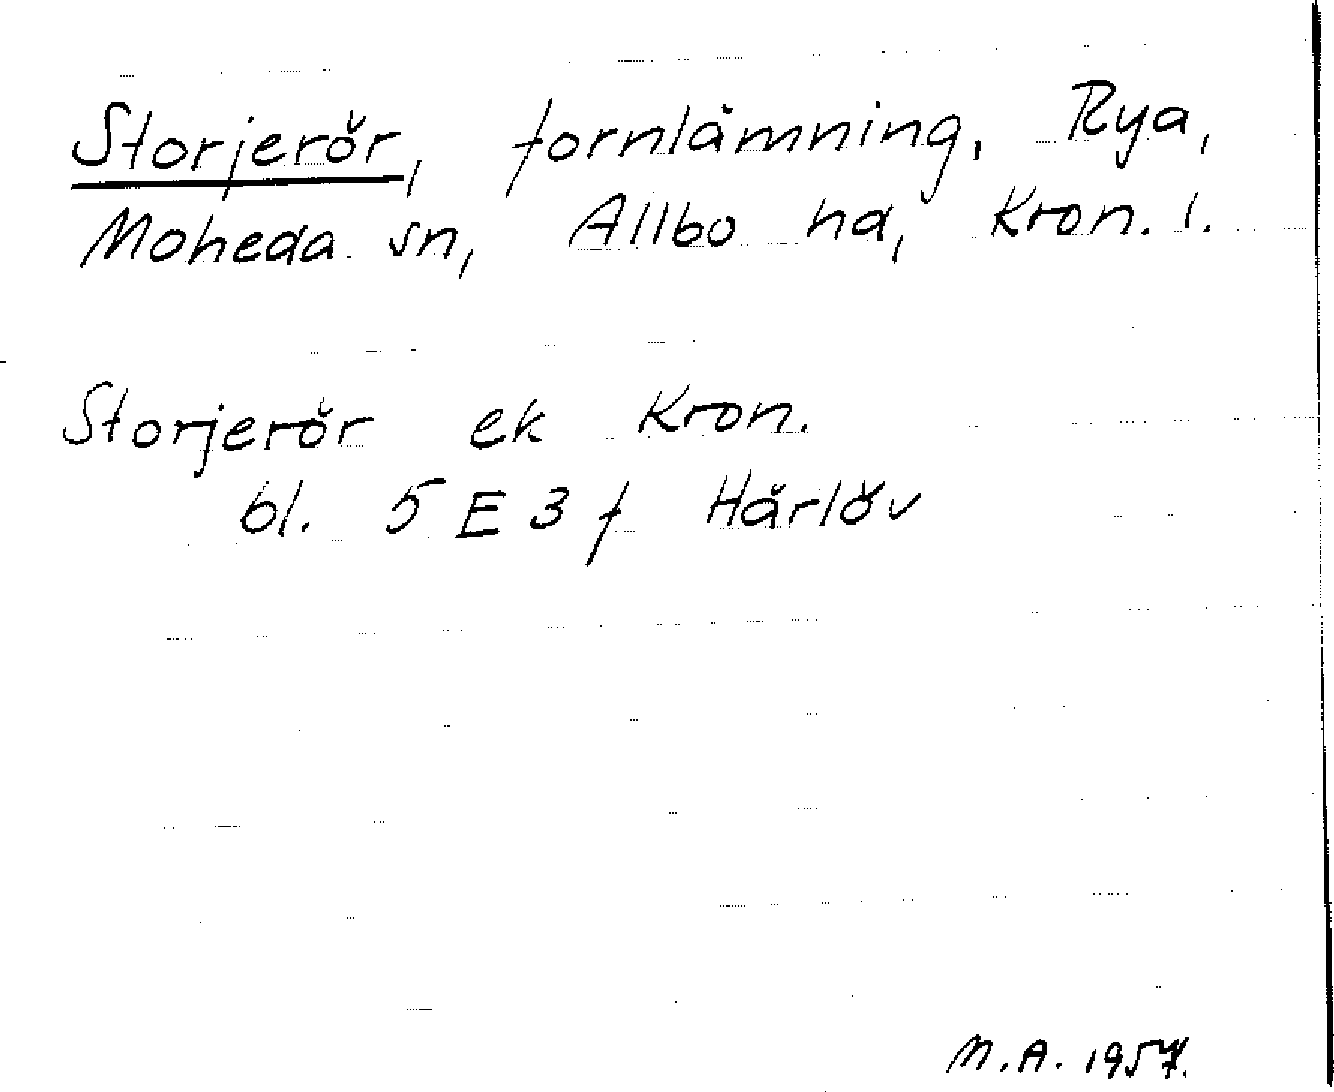 Storjerör, fornlämning, Rya,
Moheda sn, Allbo hd, Kron. l.
Storjerör ek Kron.
bl. 5 E 3 f Härlöv
M.A. 1957.